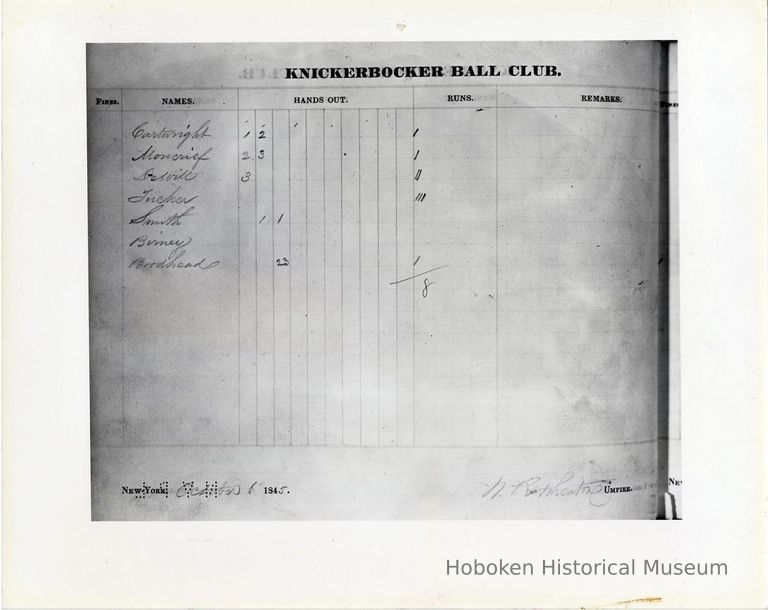 KNICKERBOCKER BALL CLUB.
FINES. NAMES. HANDS OUT. RUNS. REMARKS.
Cartwright 1 2 /
Moncrief 2 3 /
DeWitt 3 //
Tucker ///
Smith 1 1
Birney
Brodhead 23 /
8
NEW-YORK, October 6 1845. W. R. Wheaton UMPIRE.
Hoboken Historical Museum